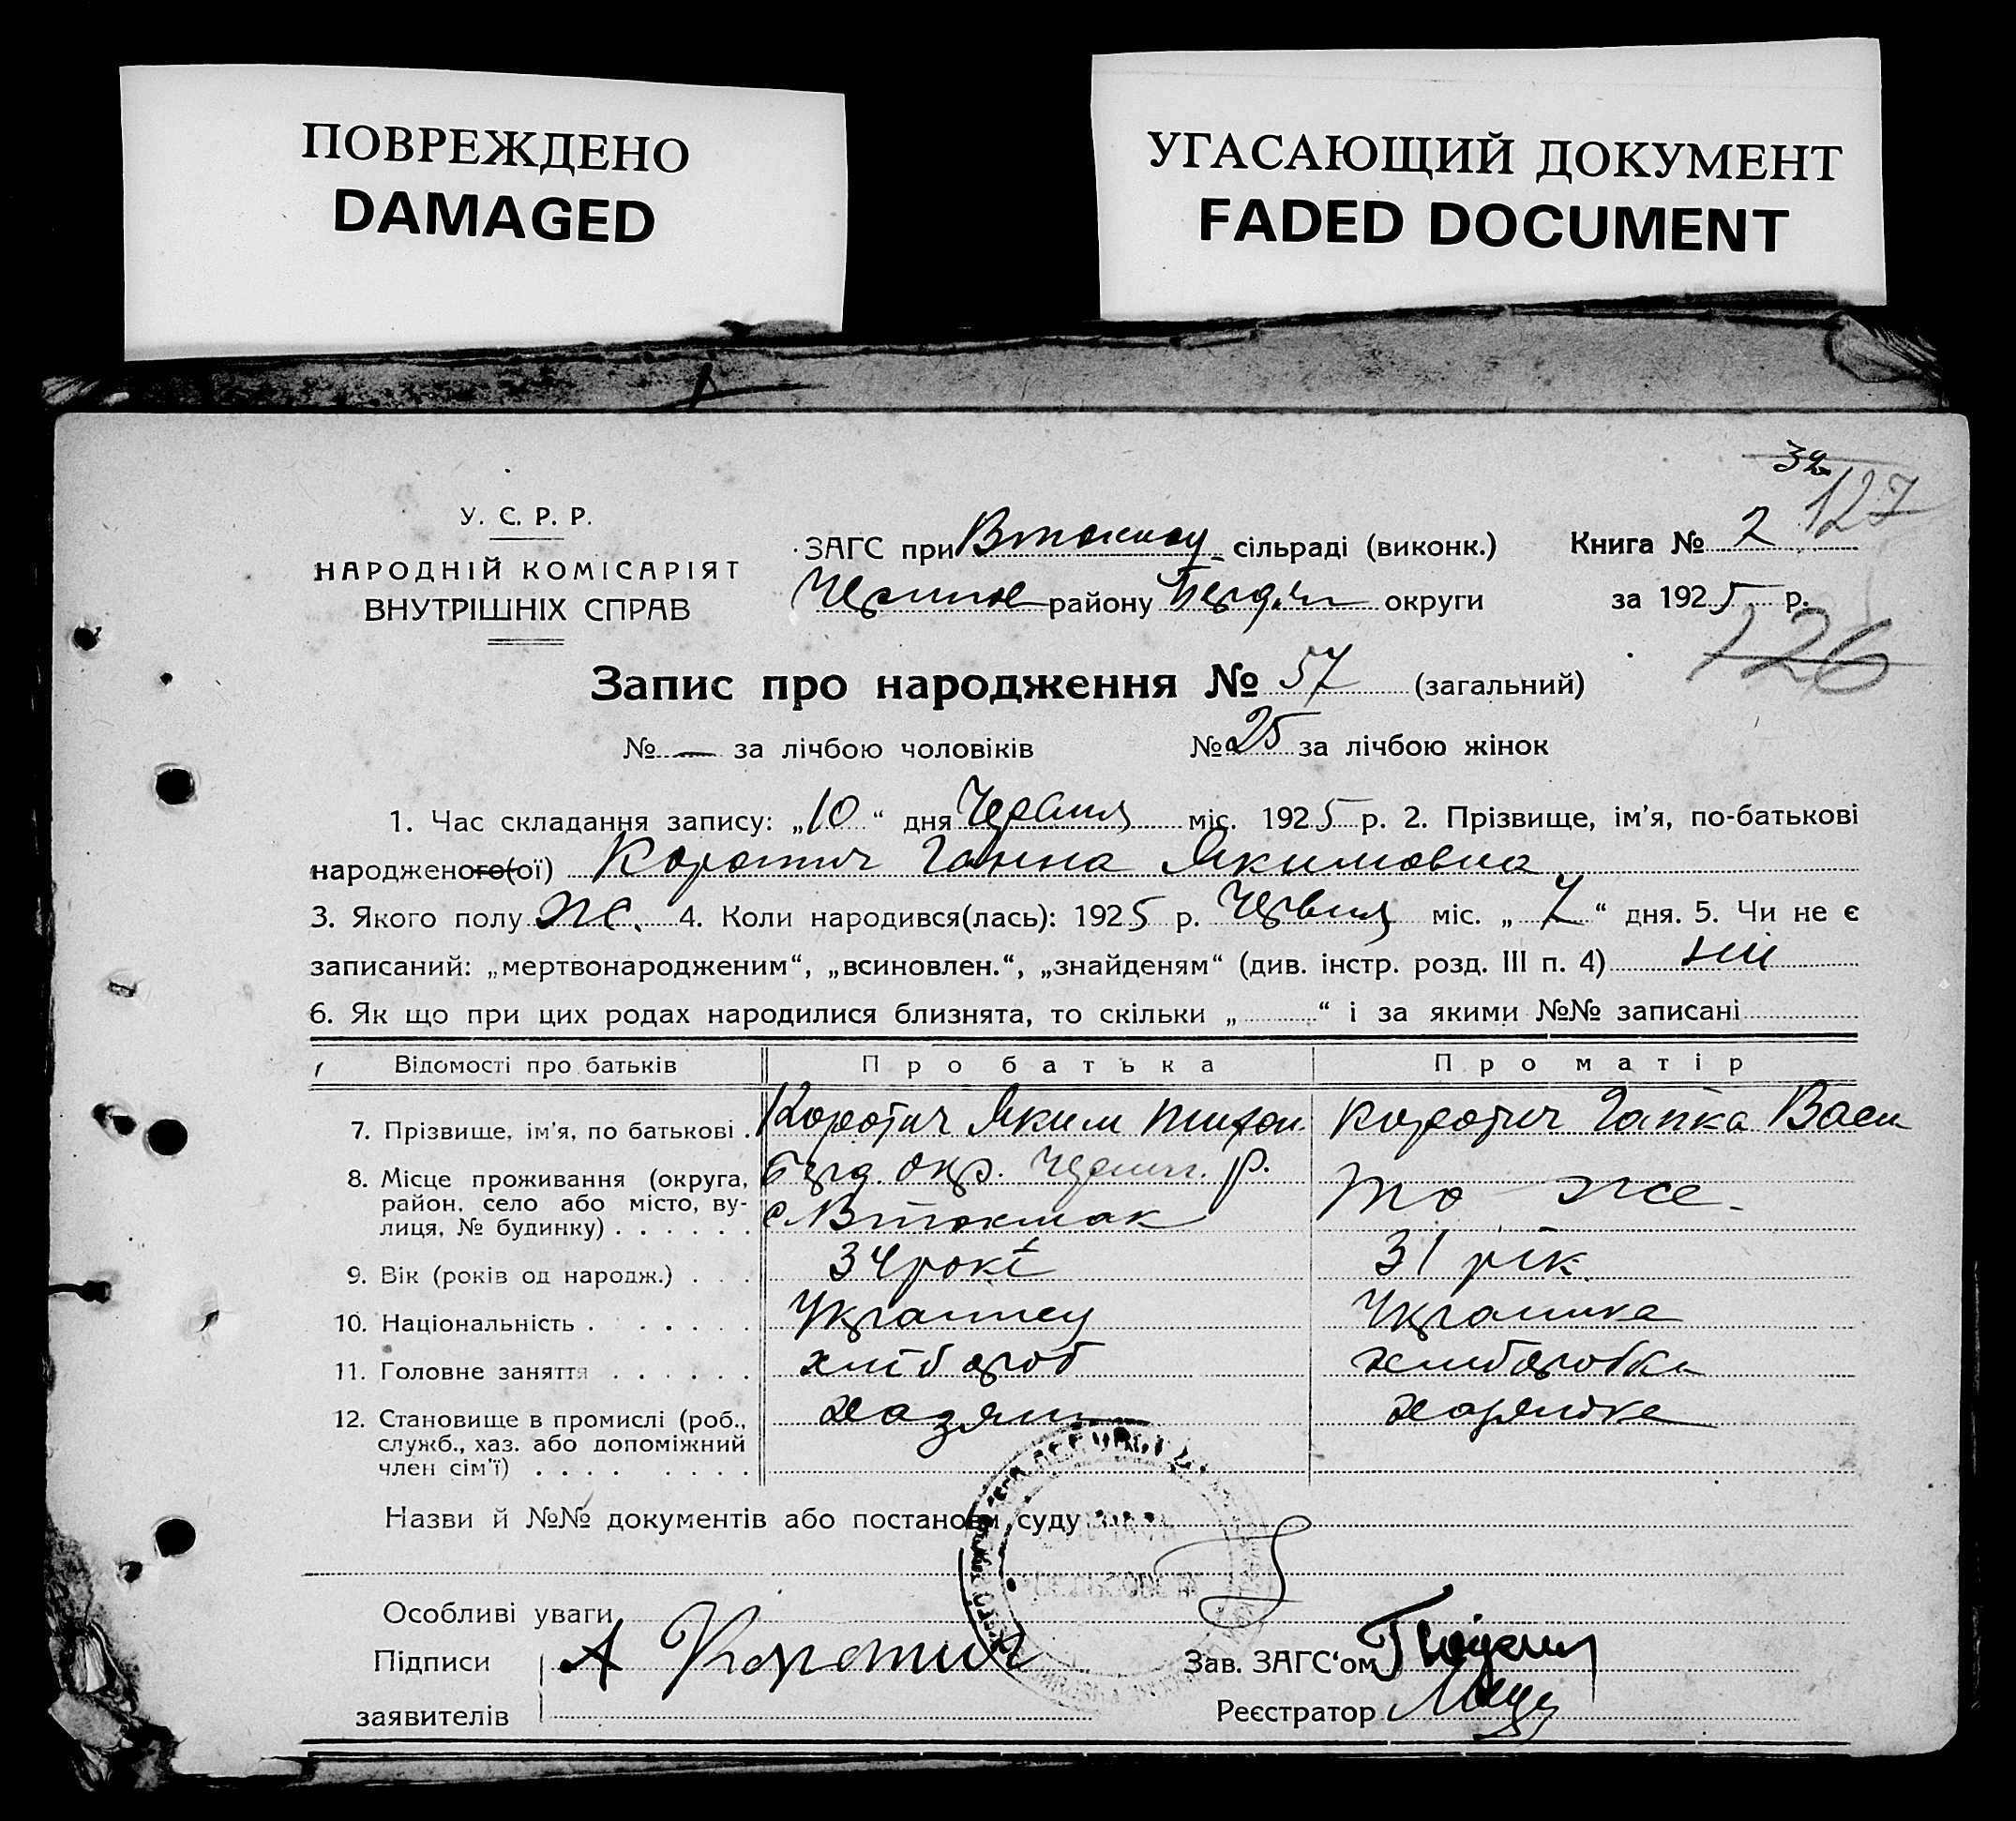 ПОВРЕЖДЕНО
DAMAGED
УГАСАЮЩИЙ ДОКУМЕНТ
FADED DOCUMENT
32
127
У. С. Р. Р.
НАРОДНІЙ КОМІСАРІЯТ
ВНУТРІШНІХ СПРАВ
ЗАГС при сільраді (виконк.)
району округи
Книга № 2
за 1925 р.
126
Запис про народження № 57 (загальний)
№ — за лічбою чоловіків № 25 за лічбою жінок
1. Час складання запису: „10“ дня Червня міс. 1925 р. 2. Прізвище, ім'я, по-батькові
народженого(ої) Коротич Ганна Якимовна
3. Якого полу ж. 4. Коли народився(лась): 1925 р. Червня міс. „7“ дня. 5. Чи не є
записаний: „мертвонародженим“, „всиновлен.“, „знайденям“ (див. інстр. розд. III п. 4) ні
6. Як що при цих родах народилися близнята, то скільки „ “ і за якими №№ записані
Відомості про батьків Про батька Про матір
7. Прізвище, ім'я, по батькові . Коротич Яким Тихон Коротич Гапка Васи
8. Місце проживання (округа, район, село або місто, вулиця, № будинку) . . . . . . Берд. окр. р. с Втокмак то же
9. Вік (років од народж.) . . . 34 рокі 31 рік
10. Національність . . . . . . Украинец Украинка
11. Головне заняття . . . . . . хлібороб хліборобка
12. Становище в промислі (роб., служб., хаз. або допоміжний член сім'ї) . . . . . . . . Хазяин
Назви й №№ документів або постанови суду
Особливі уваги
Підписи
заявителів
А Коротич
Зав. ЗАГС'ом
Реєстратор